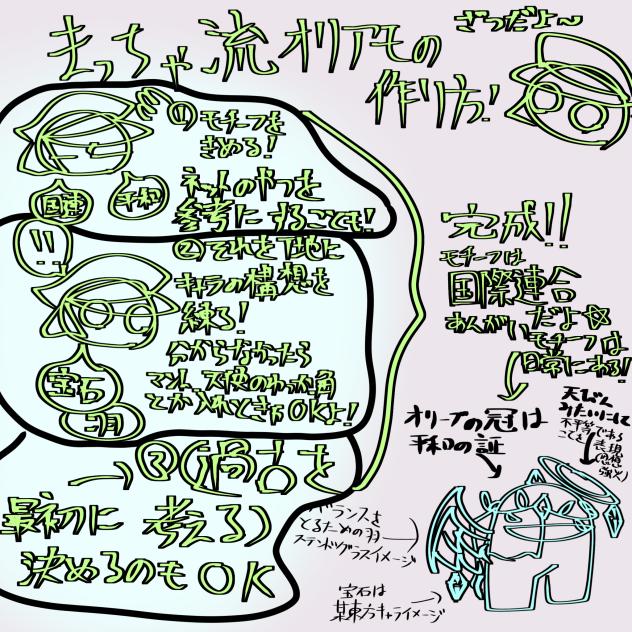 まっちゃ流オリアモの
作り方!
ざつだよ~
①モチーフを
きめる!
国連
平和
ネットのやつを
参考にすることも!
!!
②それを下地に
キャラの構想を
練ろ!
宝石
羽
分からなかったら
マント、天使のわっか、角
とか入れときゃOKよ!
→③(過去を
最初に考える)
決めるのもOK
完成!!
モチーフは
国際連合
だよ☆
あんがいモチーフは
日常にある!
オリーブの冠は
平和の証
天びん
みたいにして
不平等である
ことを表現
バランスを
とるための羽
ステンドグラスイメージ
宝石は
某東方キャライメージ